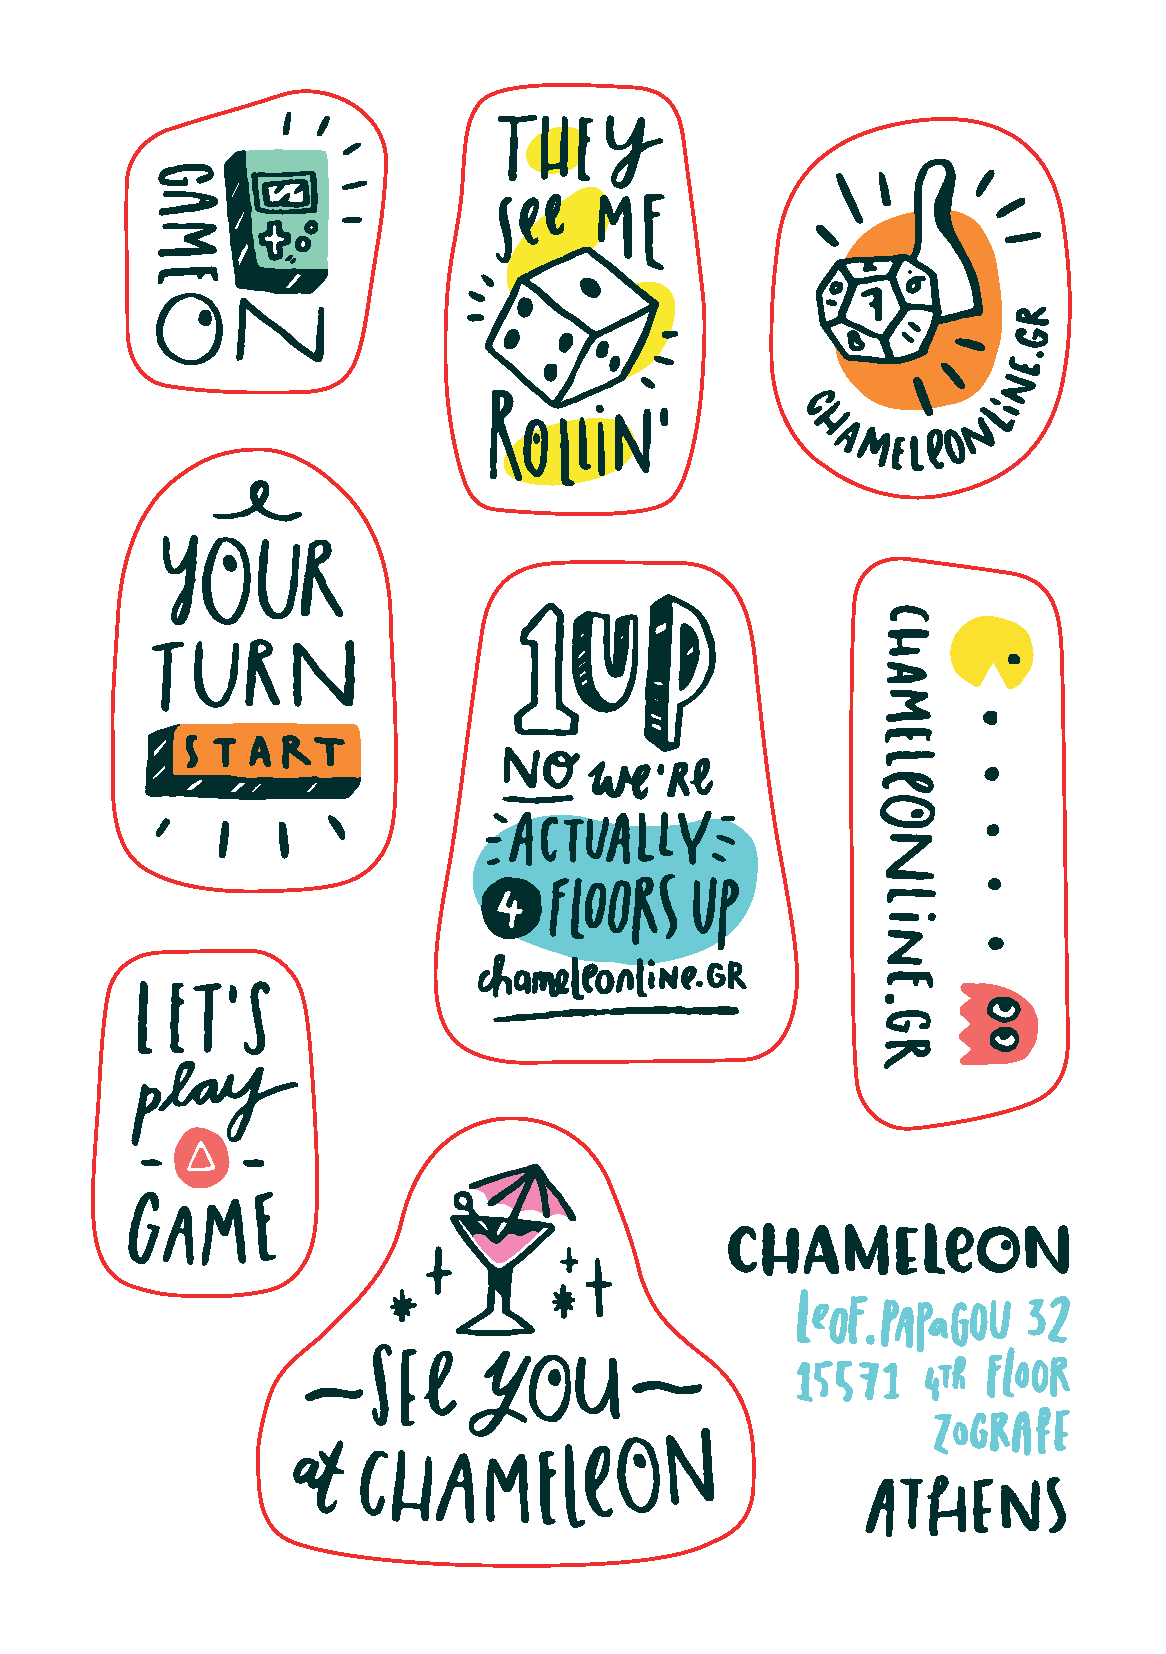 GAME
ON
THEY
See ME
ROLLIN'
7
CHAMELEONLINE.GR
YOUR
TURN
START
1UP
NO We'Re
ACTUALLY
4 FLOORS UP
chameleonline.GR
CHAMELEONLINE.GR
LET'S
play
GAME
SEE YOU
at CHAMELEON
CHAMELEON
LEOF. PAPAGOU 32
15571 4TH FLOOR
ZOGRAFE
ATHENS